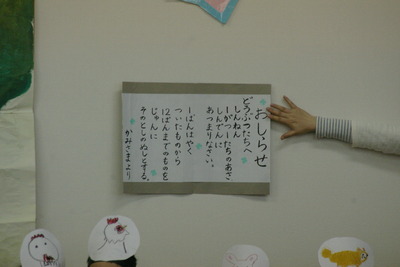 おしらせ
どうぶつたちへ
しんねん
一がつ一たちのあさ
しんでんに
あつまりなさい。
一ばんはやく
ついたものから
じゅんに
12ばんまでのものを
そのとしのぬしとする。
かみさまより